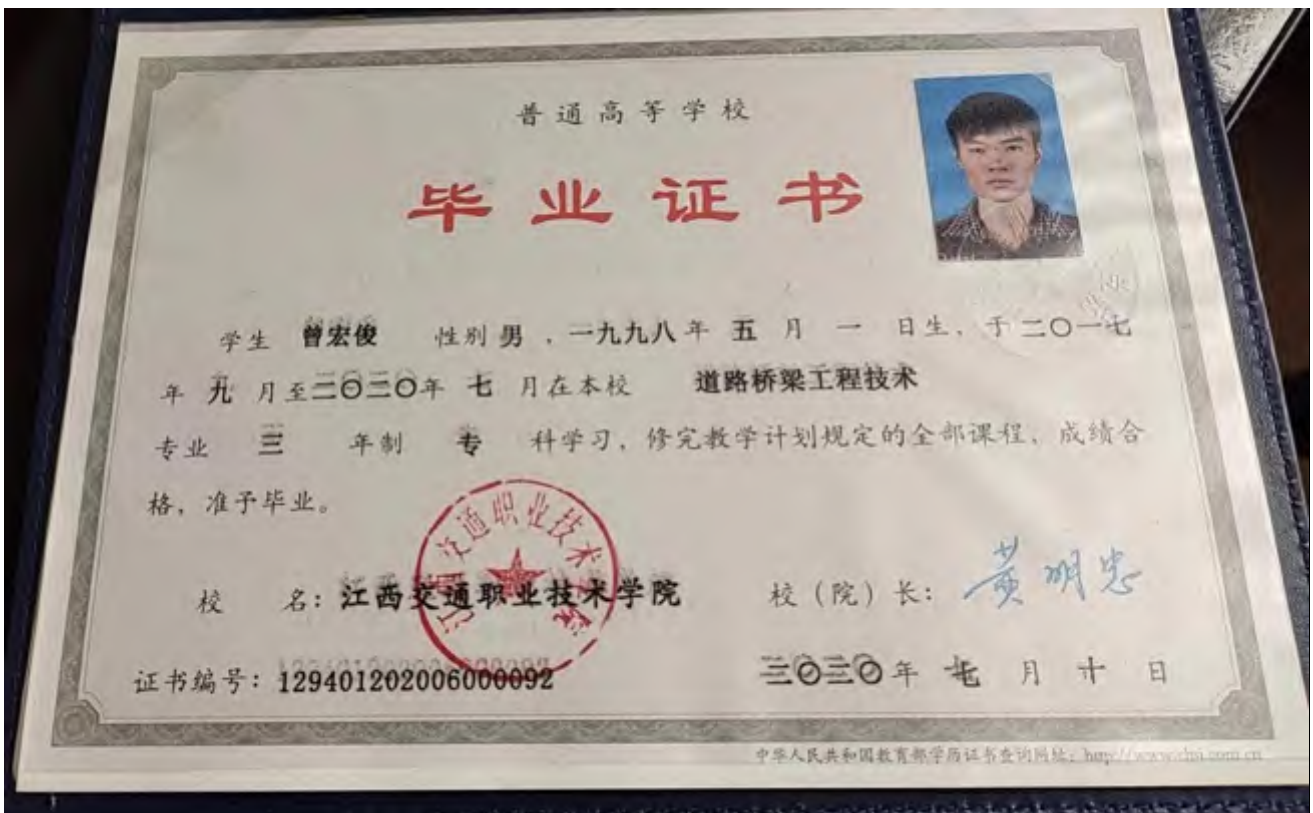 普通高等学校
毕业证书
学生 曾宏俊 性别 男 ，一九九八 年 五 月 一 日生，于二〇一七
年 九 月至二〇二〇年 七 月在本校 道路桥梁工程技术
专业 三 年制 专 科学习，修完教学计划规定的全部课程，成绩合
格，准予毕业。
江西交通职业技术学院
校 名：江西交通职业技术学院 校（院）长：黄明忠
证书编号：129401202006000092 二〇二〇年 七 月 十 日
中华人民共和国教育部学历证书查询网址：http://www.chsi.com.cn